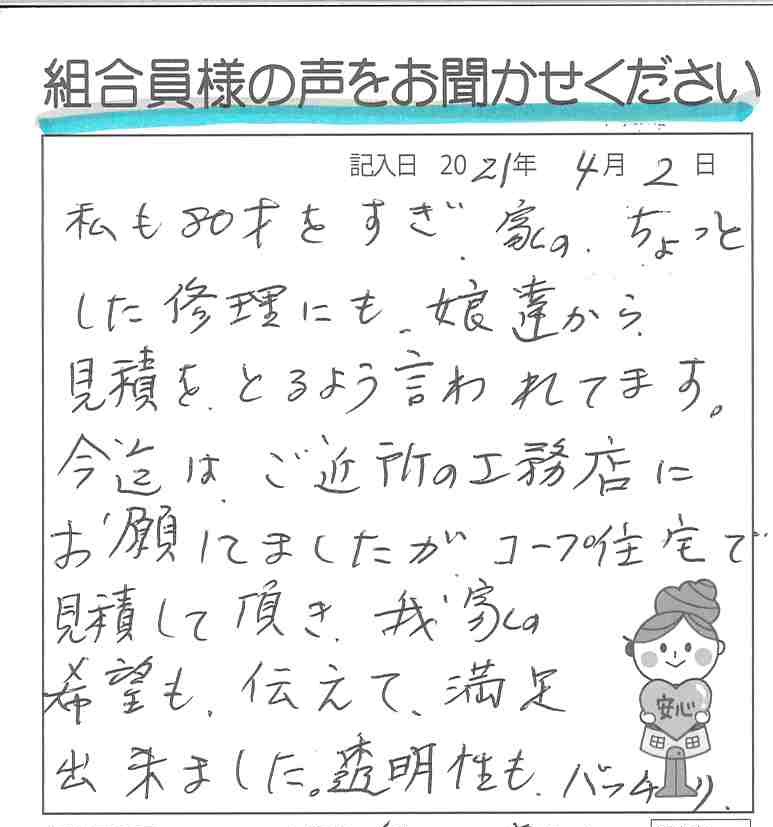 組合員様の声をお聞かせください
記入日 2021年 4月 2日
私も80才をすぎ、家の、ちょっと
した修理にも、娘達から、
見積を、とるよう言われてます。
今迄は、ご近所の工務店に
お願してましたがコープ住宅で
見積して頂き、我家の
希望も、伝えて、満足
出来ました。透明性も、バッチリ、
安心